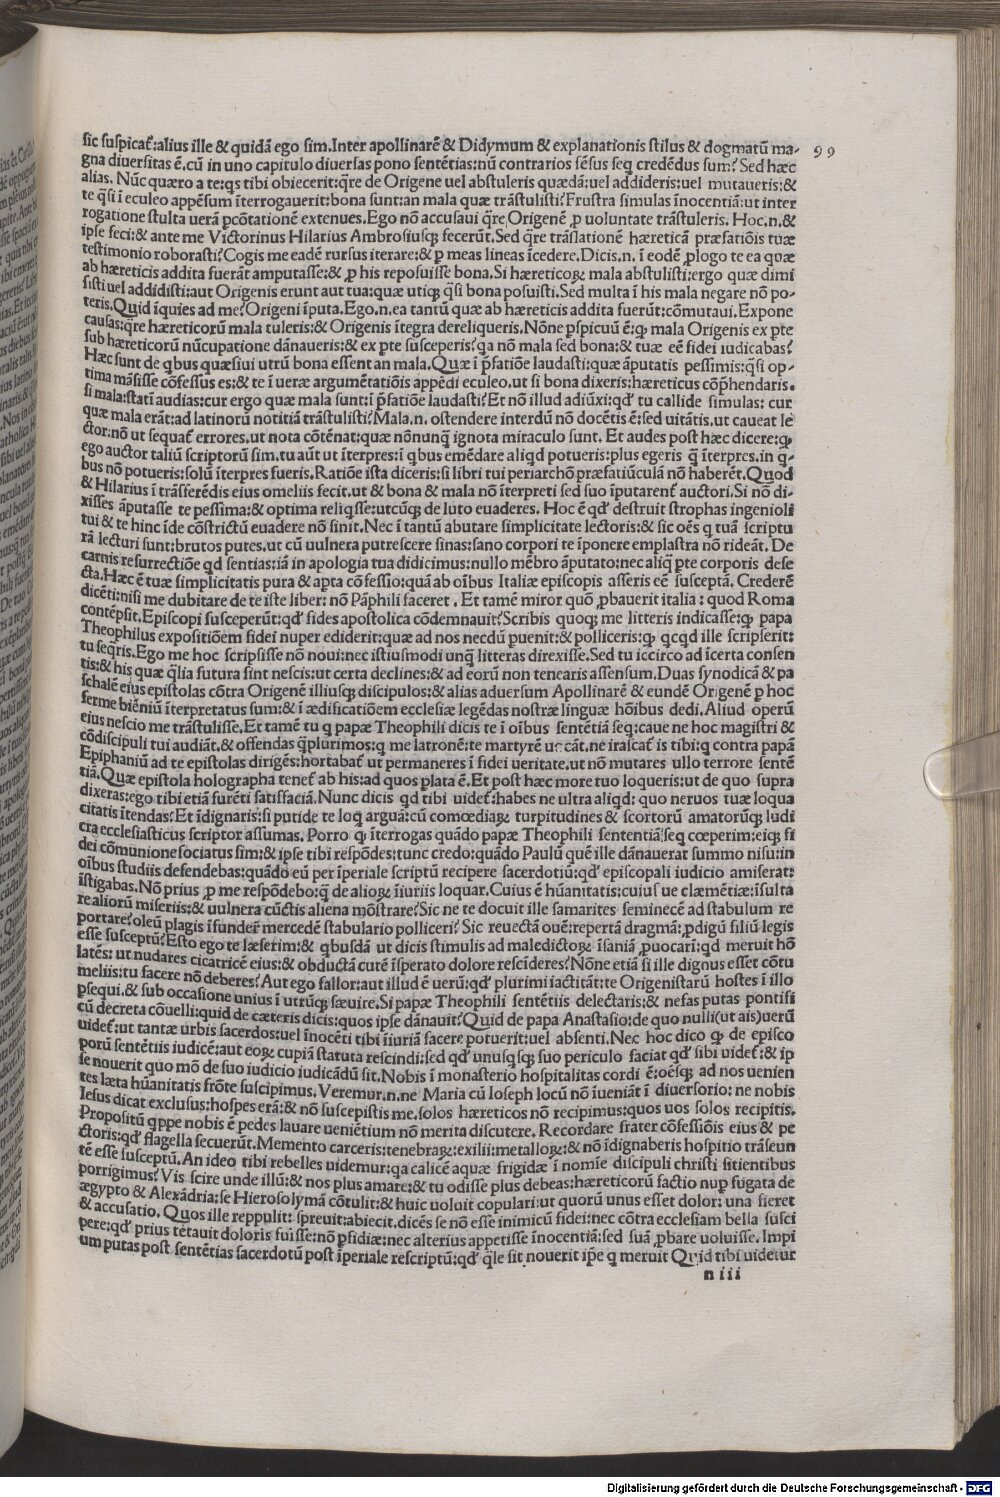 sic suspicat᷑:alius ille & quidā ego sim.Inter apollinarē & Didymum & explanationis stilus & dogmatū ma-
99
gna diuersitas ē.cū in uno capitulo diuersas pono sentētias:nū contrarios sēsus seq credēdus sum? Sed hæc
alias. Nūc quæro a te:qs tibi obiecerit:q̄re de Origene uel abstuleris quædā:uel addideris:uel mutaueris:&
te q̄si ī eculeo appēsum īterrogauerit:bona sunt:an mala quæ trāstulisti? Frustra simulas īnocentiā:ut inter
rogatione stulta uerā pcōtationē extenues.Ego nō accusaui q̄re Origenē ꝓ uoluntate trāstuleris. Hoc.n.&
ipse feci:& ante me Victorinus Hilarius Ambrosiusq; fecerūt.Sed q̄re trāslationē hæreticā præfatiōis tuæ
testimonio roborasti? Cogis me eadē rursus iterare:& ꝑ meas lineas īcedere.Dicis.n. ī eodē ꝓlogo te ea quæ
ab hæreticis addita fuerāt amputasse:& ꝓ his reposuisse bona.Si hæreticoꝝ mala abstulisti:ergo quæ dimi
sisti uel addidisti:aut Origenis erunt aut tua:quæ utiq; q̄si bona posuisti.Sed multa ī his mala negare nō po-
teris.Quid īquies ad me? Origeni īputa.Ego.n.ea tantū quæ ab hæreticis addita fuerūt:cōmutaui.Expone
causas:q̄re hæreticorū mala tuleris:& Origenis ītegra dereliqueris.Nōne ꝑspicuū ē:ꝙ mala Origenis ex ꝑte
sub hæreticorū nūcupatione dānaueris:& ex ꝑte susceperis? qa nō mala sed bona:& tuæ eē fidei iudicabas?
Hæc sunt de qbus quæsiui utrū bona essent an mala.Quæ ī p̄fatiōe laudasti:quæ āputatis pessimis:q̄si op-
tima māsisse cōfessus es:& te ī ueræ argumētatiōis appēdi eculeo.ut si bona dixeris:hæreticus cōp̄hendaris.
si mala:statī audias:cur ergo quæ mala sunt:ī p̄fatiōe laudasti? Et nō illud adiūxi:qd᷑ tu callide simulas: cur
quæ mala erāt:ad latinorū notitiā trāstulisti? Mala.n. ostendere interdū nō docētis ē:sed uitātis.ut caueat le
ctor:nō ut sequat᷑ errores.ut nota cōtēnat:quæ nōnunq̄ ignota miraculo sunt. Et audes post hæc dicere:ꝙ
ego auctor taliū scriptorū sim.tu aūt ut īterpres:ī qbus emēdare aliqd potueris:plus egeris q̄ īterpres.in q-
bus nō potueris:solū īterpres fueris.Ratiōe ista diceris:si libri tui periarchō præfatiūculā nō haberēt.Quod
& Hilarius ī trāsferēdis eius omeliis fecit.ut & bona & mala nō īterpreti sed suo īputarent᷑ auctori.Si nō di-
xisses āputasse te pessima:& optima reliqsse:utcūq; de luto euaderes. Hoc ē qd᷑ destruit strophas ingenioli
tui & te hinc īde cōstrictū euadere nō sinit. Nec ī tantū abutare simplicitate lectoris:& sic oēs q tuā scriptu
rā lecturi sunt:brutos putes.ut cū uulnera putrescere sinas:sano corpori te īponere emplastra nō rideāt. De
carnis resurrectiōe qd sentias:iā in apologia tua didicimus:nullo mēbro āputato:nec aliq ꝑte corporis dese
cta.Hæc ē tuæ simplicitatis pura & apta cōfessio:quā ab oībus Italiæ episcopis asseris eē susceptā. Crederē
dicēti:nisi me dubitare de te iste liber: nō Pāphili faceret . Et tamē miror quō ꝓbauerit italia : quod Roma
contēpsit.Episcopi susceperūt:qd᷑ sides apostolica cōdemnauit? Scribis quoq; me litteris indicasse:ꝙ papa
Theophilus expositiōem fidei nuper ediderit:quæ ad nos necdū ꝑuenit:& polliceris:ꝙ qcqd ille scripserit:
tu seq̄ris.Ego me hoc scripsisse nō noui:nec istiusmodi unq̄ litteras direxisse.Sed tu iccirco ad īcerta consen
tis:& his quæ q̄lia futura sint nescis:ut certa declines:& ad eorū non tenearis assensum.Duas synodicā & pa
schalē eius epistolas cōtra Origenē illiusq; discipulos:& alias aduersum Apollinarē & eundē Origenē ꝑ hoc
ferme biēniū īterpretatus sum:& ī ædificatiōem ecclesiæ legēdas nostræ linguæ hōibus dedi.Aliud operū
eius nescio me trāstulisse.Et tamē tu q papæ Theophili dicis te ī oībus sentētiā seq:caue ne hoc magistri &
cōdiscipuli tui audiāt.& offendas q̄plurimos:q me latronē:te martyrē uocāt.ne irascat᷑ is tibi:q contra papā
Epiphaniū ad te epistolas dirigēs:hortabat᷑ ut permaneres ī fidei ueritate.ut nō mutares ullo terrore sentē
tiā.Quæ epistola holographa tenet᷑ ab his:ad quos plata ē.Et post hæc more tuo loqueris:ut de quo supra
dixeras:ego tibi etiā furēti satisfaciā.Nunc dicis qd tibi uidet᷑:habes ne ultra aliqd: quo neruos tuæ loqua
citatis ītendas? Et īdignaris:si putide te loq arguā:cū comœdiaꝝ turpitudines & scortorū amatorūq; ludi
cra ecclesiasticus scriptor assumas. Porro ꝙ īterrogas quādo papæ Theophili sententiā:seq cœperim:eiq; fi
dei cōmunione sociatus sim:& ipse tibi respōdes:tunc credo:quādo Paulū quē ille dānauerat summo nisu:in
oībus studiis defendebas:quādo eū per īperiale scriptū recipere sacerdotiū:qd᷑ episcopali iudicio amiserat:
īstigabas.Nō prius ꝓ me respōdebo:q̄ de alioꝝ īiuriis loquar.Cuius ē hūanitatis:cuius ue clæmētiæ:īsulta
re aliorū miseriis:& uulnera cūctis aliena mōstrare? Sic ne te docuit ille samarites seminecē ad stabulum re
portare? oleū plagis īfundere᷑ mercedē stabulario polliceri? Sic reuectā ouē:repertā dragmā:ꝓdigū filiū legis
esse susceptū? Esto ego te læserim:& qbusdā ut dicis stimulis ad maledictoꝝ īsaniā ꝓuocarī:qd meruit hō
latēs: ut nudares cicatricē eius:& obductā cutē īsperato dolore rescīderes? Nōne etiā si ille dignus esset cōtu
meliis:tu facere nō deberes? Aut ego fallor:aut illud ē uerū:qd᷑ plurimi iactitāt:te Origenistarū hostes ī illo
ꝑsequi.& sub occasione unius ī utrūq; sæuire.Si papæ Theophili sentētiis delectaris:& nefas putas pontifi
cū decreta cōuelli:quid de cæteris dicis:quos ipse dānauit? Quid de papa Anastasio:de quo nulli(ut ais)uerū
uidet᷑:ut tantæ urbis sacerdos:uel īnocēti tibi īiuriā facere potuerit:uel absenti. Nec hoc dico ꝙ de episco
porū sentētiis iudicē:aut eoꝝ cupiā statuta rescindi:sed qd᷑ unusqsq; suo periculo faciat qd᷑ sibi uidet᷑:& ip
se nouerit quo mō de suo iudicio iudicādū sit.Nobis ī monasterio hospitalitas cordi ē:oēsq; ad nos uenien
tes læta hūanitatis frōte suscipimus.Veremur.n.ne Maria cū Ioseph locū nō īueniāt ī diuersorio: ne nobis
Iesus dicat exclusus:hospes erā:& nō suscepistis me.solos hæreticos nō recipimus:quos uos solos recipitis.
Propositū qppe nobis ē pedes lauare ueniētium nō merita discutere. Recordare frater cōfessiōis eius & pe
ctoris:qd᷑ flagella secuerūt.Memento carceris:tenebraꝝ:exilii:metalloꝝ:& nō īdignaberis hospitio trāseun
tē esse susceptū.An ideo tibi rebelles uidemur:qa calicē aquæ frigidæ ī nomīe discipuli christi sitientibus
porrigimus? Vis scire unde illū:& nos plus amare:& tu odisse plus debeas:hæreticorū factio nup fugata de
ægypto & Alexādria:se Hierosolymā cōtulit:& huic uoluit copulari:ut quorū unus esset dolor: una fieret
& accusatio. Quos ille reppulit: spreuit:abiecit.dicēs se nō esse inimicū fidei:nec cōtra ecclesiam bella susci
pere:qd᷑ prius tētauit doloris fuisse:nō ꝑfidiæ:nec alterius appetisse īnocentiā:sed suā ꝓbare uoluisse. Impi
um putas post sentētias sacerdotū post īperiale rescriptū:qd᷑ q̄le sit nouerit ip̄e q meruit Quid tibi uidetur
n iii
Digitalisierung gefördert durch die Deutsche Forschungsgemeinschaft - DFG